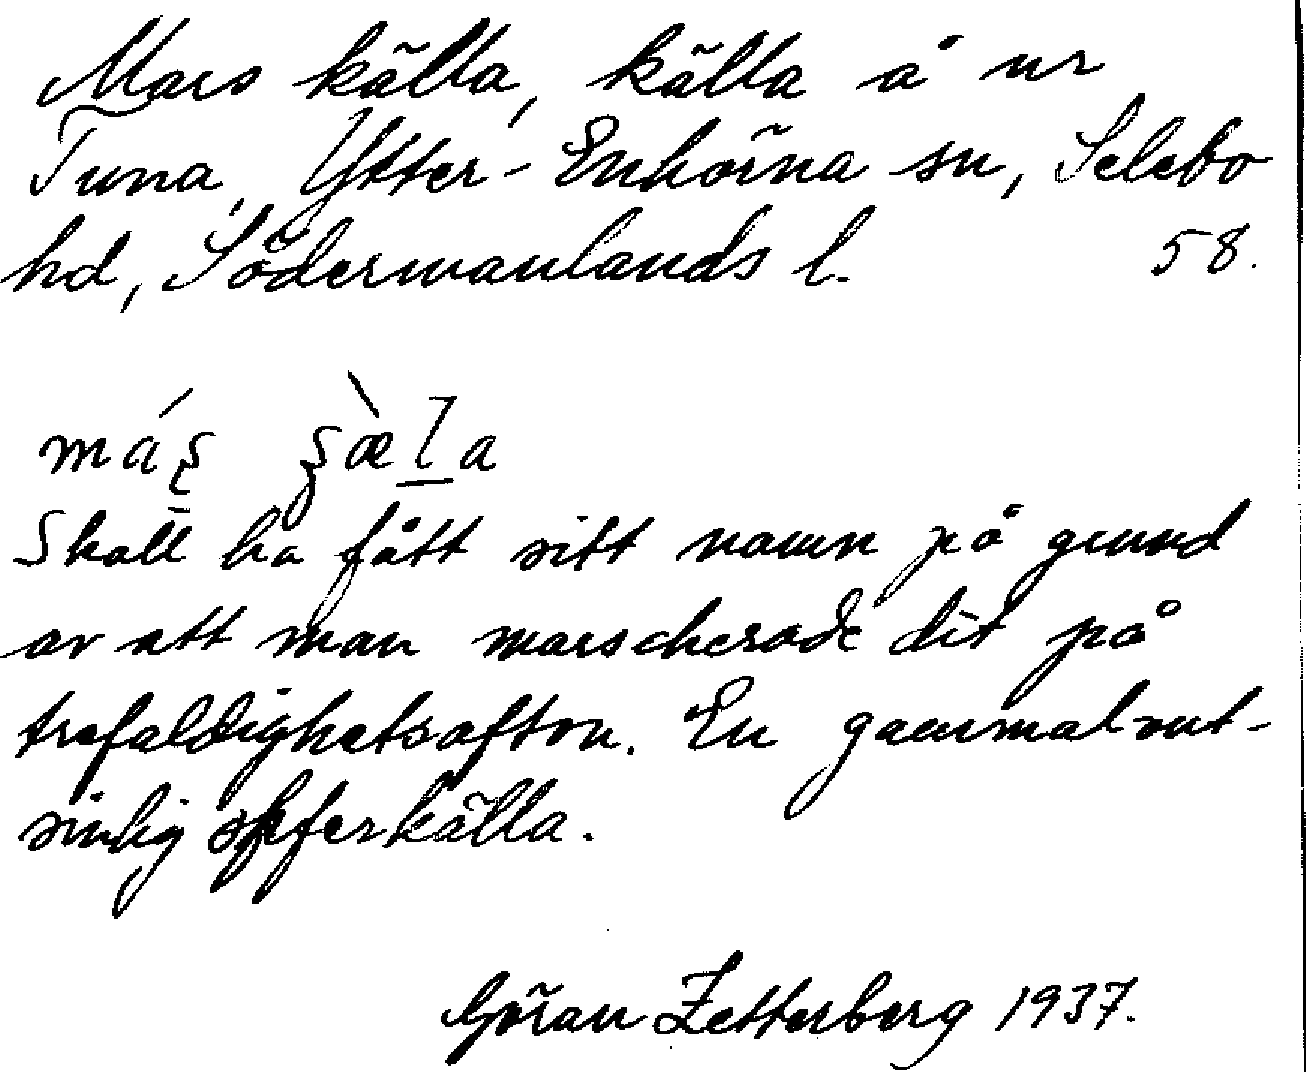 Mars källa, källa å ur
Tuna, Ytter-Enhörna sn, Selebo
hd, Södermanlands l. 58.
Skall ha fått sitt namn på grund
av att man marscherade dit på
trefaldighetsafton. En gammal vat-
sinlig offerkälla.
Göran Zetterberg 1937.